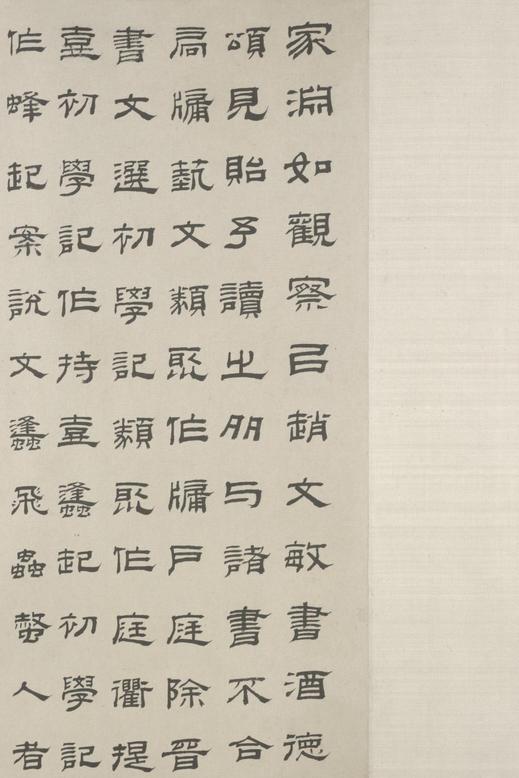 家淵如觀察㠯趙文敏書酒德
頌見貽予讀之多与諸書不合
扃牖埶文類聚作牖戶庭除晉
書文選初學記類聚作庭衢提
壺初學記作持壺蠭起初學記
作蜂起案說文蠭飛蟲螫人者